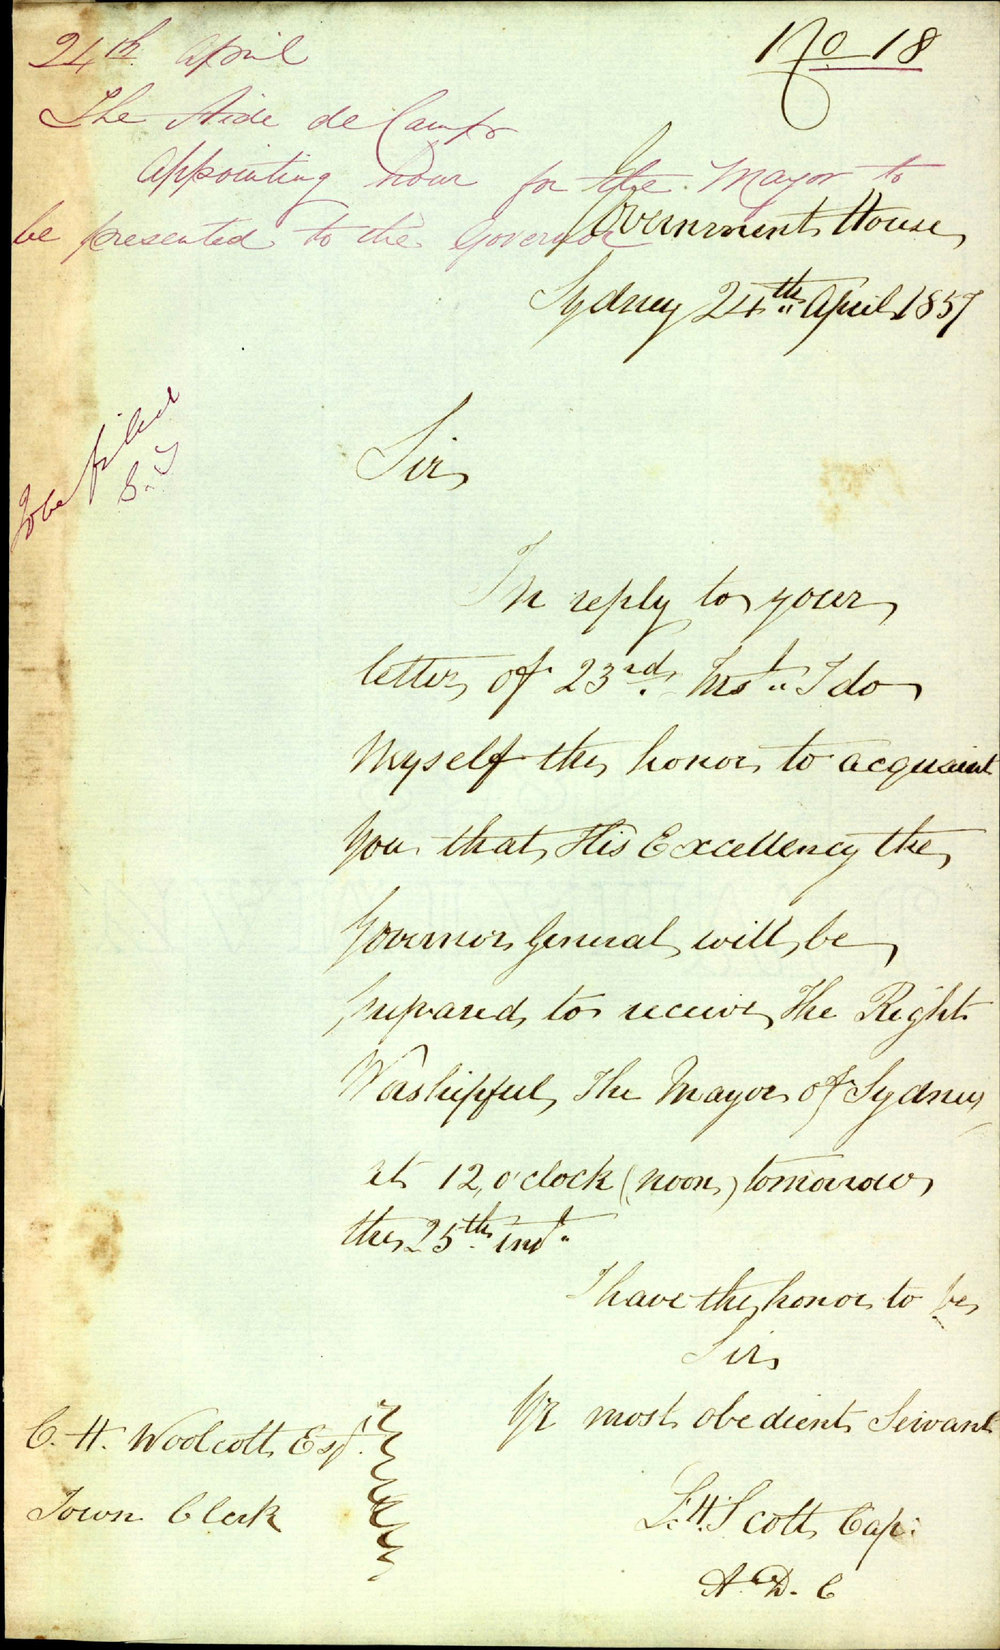 24th April
No 18
The Aide de Camp
Appointing hour for the Mayor to
be presented to the Governor
Government House
Sydney 24th April 1857
To be filed
Sir
In reply to your
letter of 23rd Inst. I do
myself the honor to acquaint
you that His Excellency the
Governor General will be
prepared to receive The Right
Worshipful The Mayor of Sydney
at 12 o'clock (noon) tomorrow
the 25th inst.
I have the honor to be
Sir
Yr most obedient Servant
C. H. Woolcott Esqr.
Town Clerk
H. Scott Cap:
A. D. C